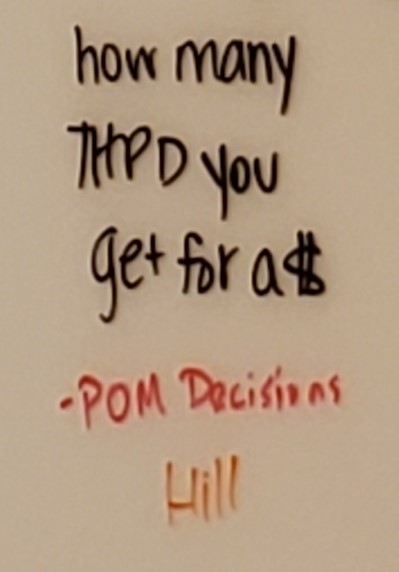 how many
THPD you
get for a $
-POM Decisions
Hill